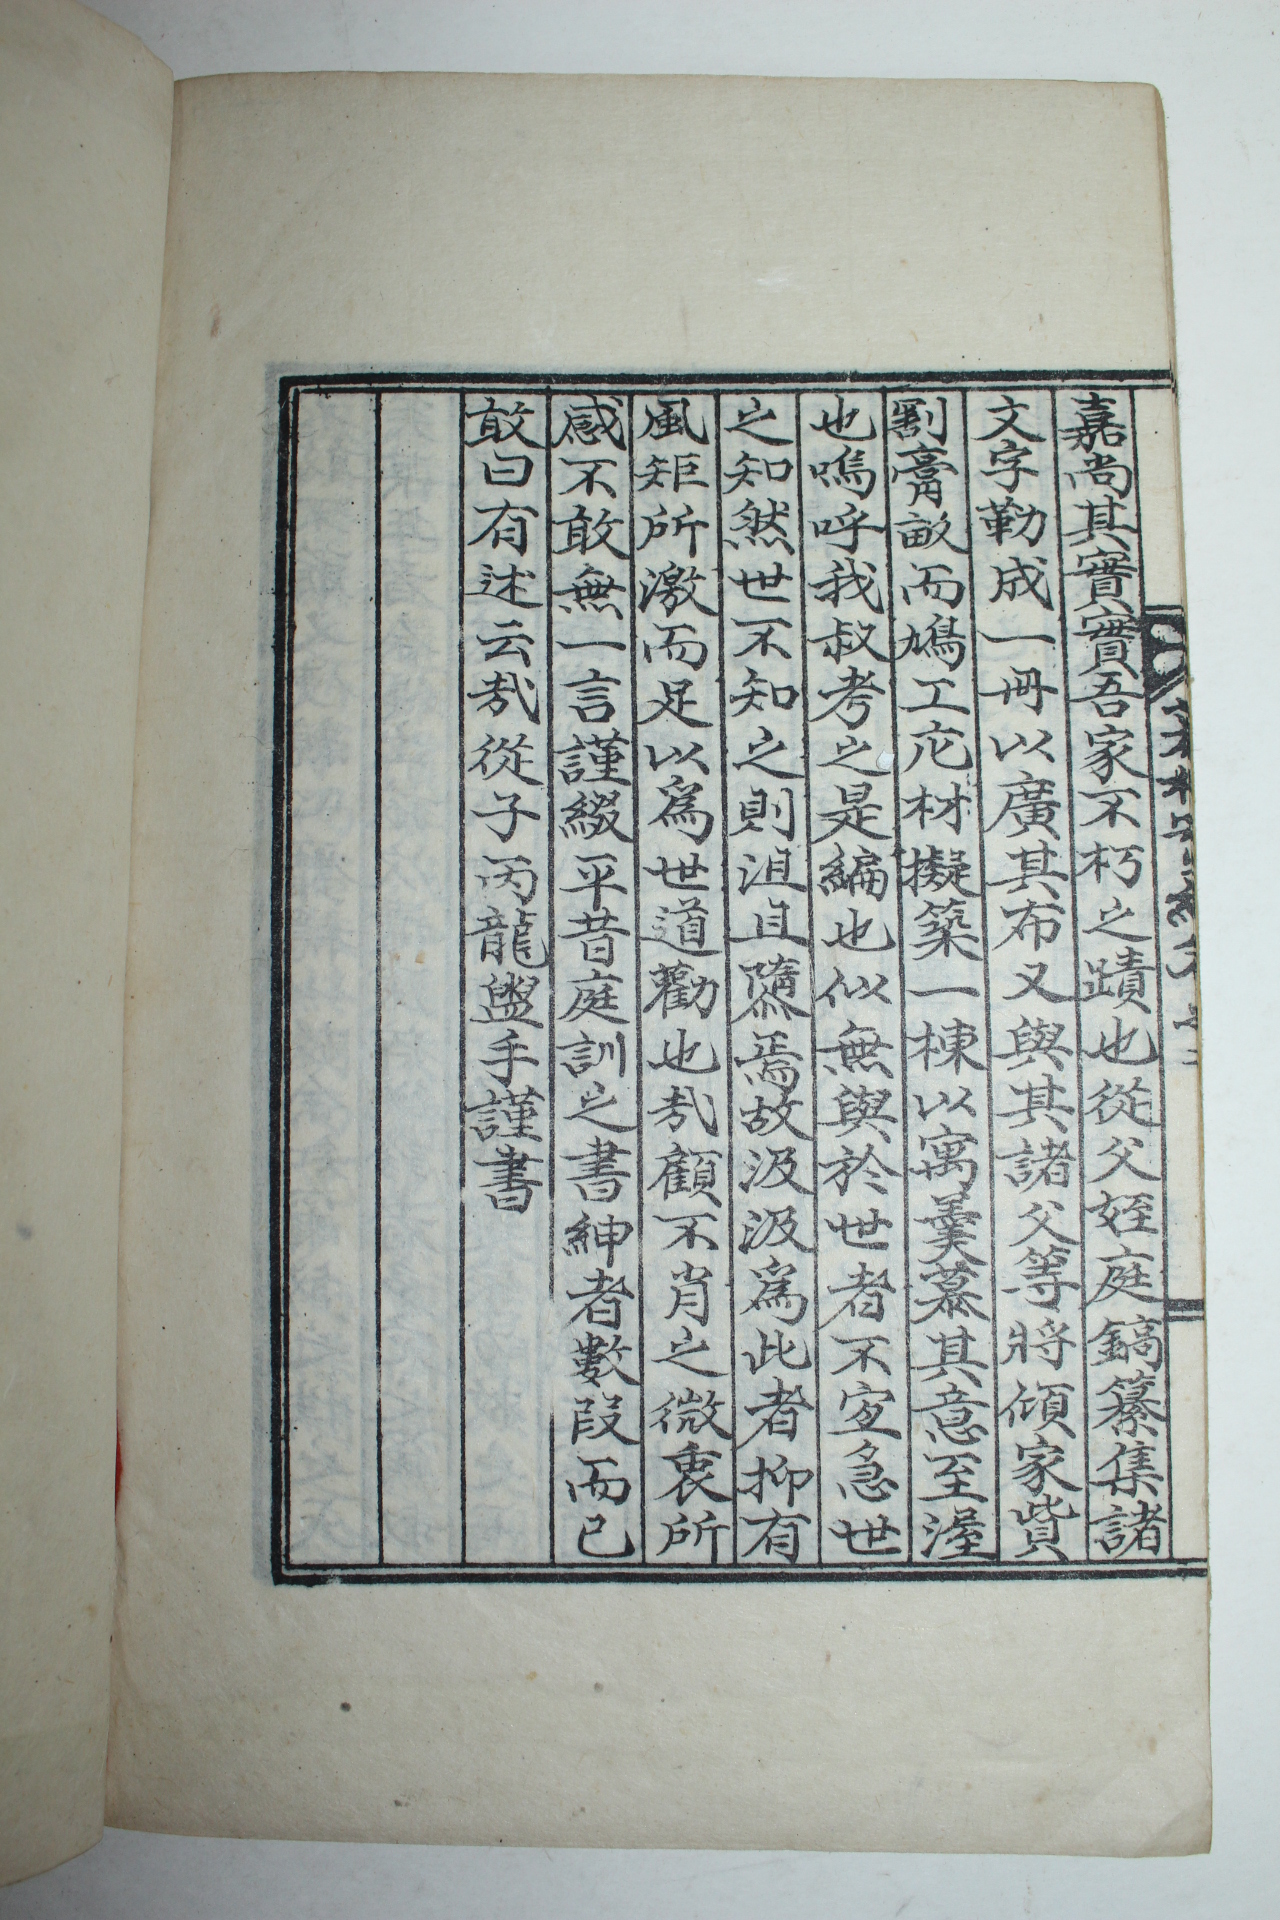 嘉尚其實實吾家不朽之蹟也從父姪庭鎬纂集諸
文字勒成一冊以廣其布又與其諸父等將傾家貲
割膏畝而鳩工庀材擬築一棟以寓羹慕其意至渥
也嗚呼我叔考之是編也似無與於世者不宜急世
之知然世不知之則沮且隳焉故汲汲爲此者抑有
風矩所激而足以爲世道勸也㢤顧不肖之微衷所
感不敢無一言謹綴平昔庭訓之書紳者數段而已
敢曰有述云㢤從子丙龍盥手謹書